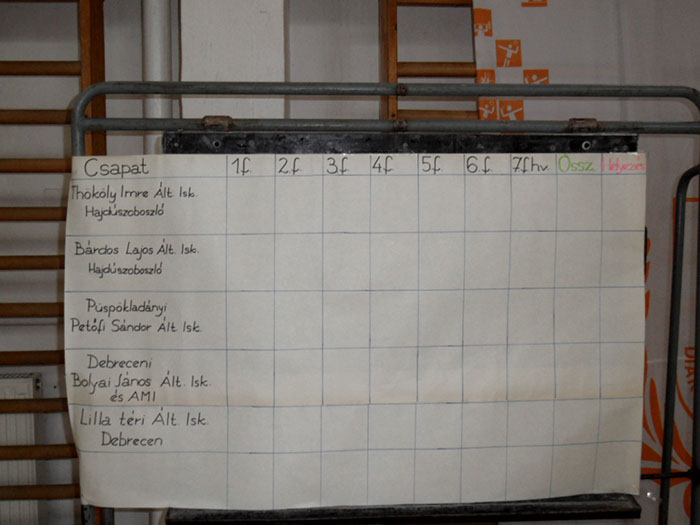 Csapat 1.f. 2.f. 3.f. 4.f. 5.f. 6.f. 7.f hv. Össz. Helyezés
Thököly Imre Ált. Isk.
Hajdúszoboszló
Bárdos Lajos Ált. Isk.
Hajdúszoboszló
Püspökladányi
Petőfi Sándor Ált. Isk.
Debreceni
Bolyai János Ált. Isk.
és AMI
Lilla téri Ált. Isk.
Debrecen